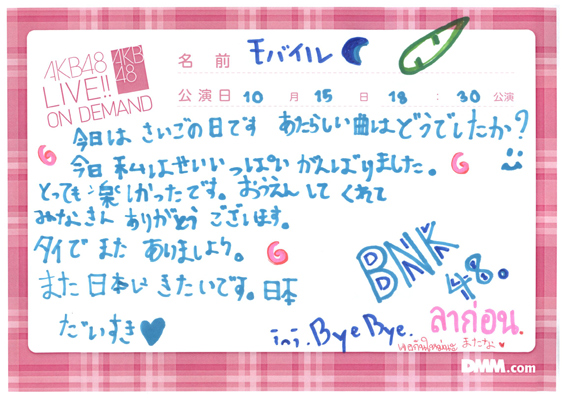 AKB48
LIVE!!
ON DEMAND
AKB
48
名前 モバイル
公演日 10月15日 18:30公演
今日は さいごの日です あたらしい曲はどうでしたか?
今日 私はせいいっぱい がんばりました。
とっても 楽しかったです。おうえんして くれて
みなさん ありがとう ございます。
タイで また あいましょう。
また 日本に きたいです。日本
だいすき
BNK
48.
Bye Bye.
ลาก่อน.
またね
DMM.com